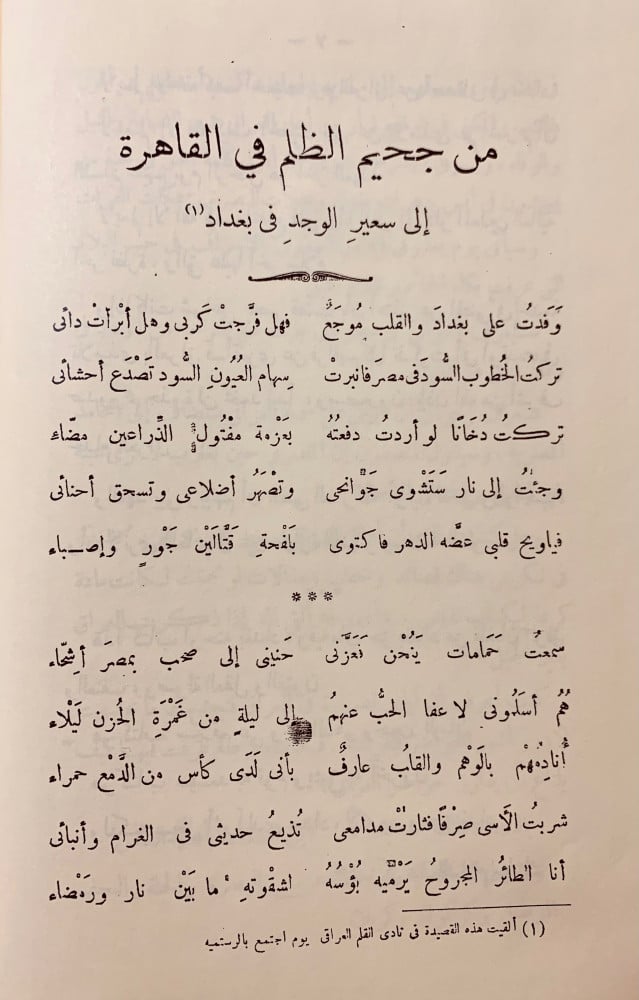 من جحيم الظلم في القاهرة
إلى سعيرِ الوجدِ فى بغداد (١)
وَفدتُ على بغدادَ والقلب مُوجَعٌ فهل فرَّجتْ كَربى وهل أبْرأتْ دائى
تركتُ الخُطوب السُّودَ فى مصرَ فانبرتْ سِهام العُيُونِ السُّود تَصْدَع أحشائى
تركتُ دُخَانًا لو أردتُ دفعتُهُ بعَزمة مفْتُولِ الذِّراعين مضّاء
وجئتُ إلى نار سَتَشْوى جَوَانحى وتَصْهَرُ أضلاعى وتسحق أحنائى
فياويح قلبى عضَّه الدهر فاكتوى بلفْحةِ قتَّالَيْن جَوْرٍ وإصباء
***
سمعتُ حَمَامات يَنُحْن فَعَزَّنى حَنينى إلى صحب بمصرَ أشِحَّاء
هُمُ أسلَمُونى لاعفا الحبُّ عنهمُ إلى ليلةٍ من غَمْرَةِ الحُزن لَيْلاء
أُنادِمُهُمْ بالوَهْم والقلبُ عارفٌ بأنى لَدَى كأس من الدَّمْع حمراء
شربتُ الأسى صِرْفًا فثارتْ مدامعى تُذيعُ حديثى فى الغرام وأنبائى
أنا الطائرُ المجروحُ يَرْمْيه بُؤْسُهُ لشقْوتهِ ما بَيْن نار ورَمْضاء
(١) ألقيت هذه القصيدة فى نادى القلم العراقى يوم اجتمع بالرستميه